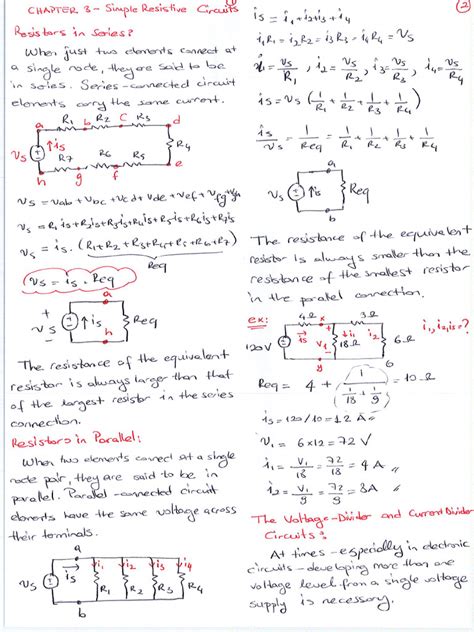 ①
CHAPTER 3 - Simple Resistive Circuits
Resistors in Series:
When just two elements connect at
a single node, they are said to be
in series. Series-connected circuit
elements carry the same current.
a R1 b R2 c R3 d
vs + - ↑is R4
h R7 g R6 f R5 e
vs = vab + vbc + vcd + vde + vef + vfg + vgh
vs = R1is+R2is+R3is+R4is+R5is+R6is+R7is
vs = is. (R1+R2+R3+R4+R5+R6+R7)
Req
vs = is . Req
a
+ vs - + - ↑is Req
h
The resistance of the equivalent
resistor is always larger than that
of the largest resistor in the series
connection.
Resistors in Parallel:
When two elements connect at a single
node pair, they are said to be in
parallel. Parallel-connected circuit
elements have the same voltage across
their terminals.
a
vs + - is i1 i2 i3 i4
R1 R2 R3 R4
b
②
is = i1+i2+i3+i4
i1R1 = i2R2 = i3R3 = i4R4 = vs
i1 = vs/R1 , i2 = vs/R2 , i3 = vs/R3 , i4 = vs/R4
is = vs (1/R1 + 1/R2 + 1/R3 + 1/R4)
is/vs = 1/Req = 1/R1 + 1/R2 + 1/R3 + 1/R4
a
vs + - ↑is Req
b
The resistance of the equivalent
resistor is always smaller than the
resistance of the smallest resistor
in the parallel connection.
ex: 4Ω x 3Ω
120V + - is + v1 - ↓i1 18Ω i2 6Ω i1, i2, is=?
y
Req = 4 + (1 / (1/18 + 1/9)) = 10Ω
is = 120/10 = 12 A
v1 = 6×12 = 72 V
i1 = v1/18 = 72/18 = 4 A
i2 = v1/9 = 72/9 = 8A
The Voltage-Divider and Current Divider
Circuits:
At times - especially in electronic
circuits - developing more than one
voltage level from a single voltage
supply is necessary.